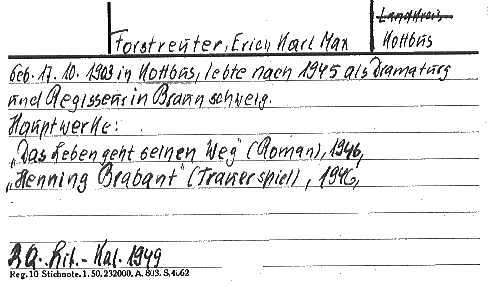 Landkreis
Forstreuter, Erich Karl Max
Kottbus
geb. 17. 10. 1903 in Kottbus, lebte nach 1945 als Dramaturg
und Regisseur in Braunschweig.
Hauptwerke:
„Das Leben geht seinen Weg" (Roman), 1946,
„Henning Brabant" (Trauerspiel), 1946,
Lit.-Kal. 1949
Reg. 10 Stichnote. 1. 50. 232000. A. 803. S. 4662